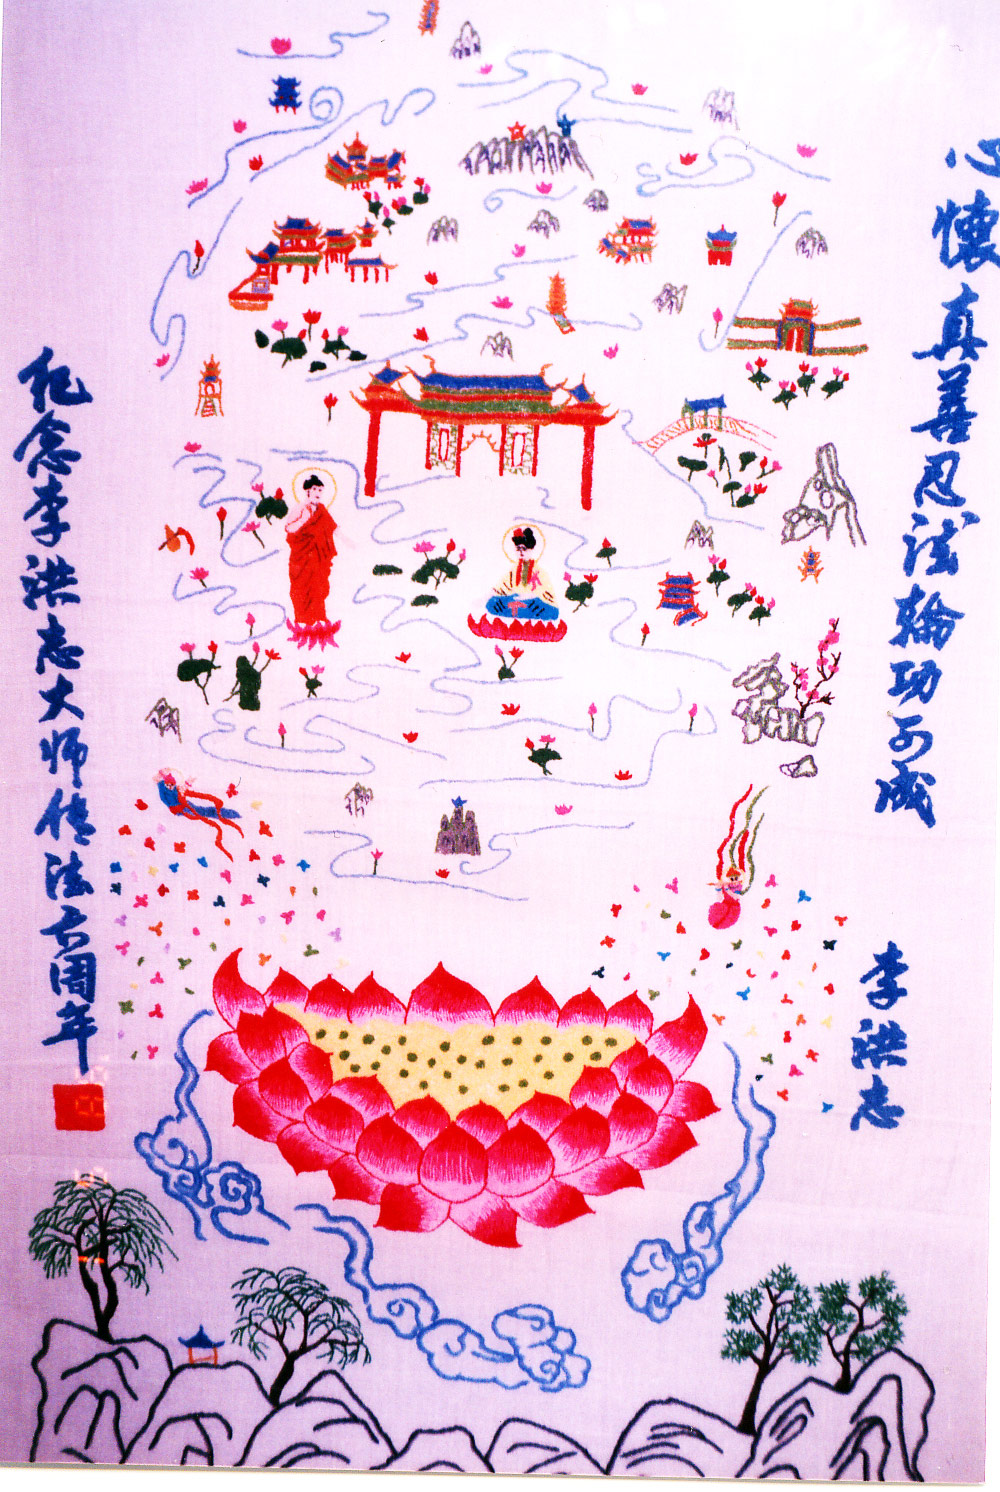 心懷真善忍法輪功可成
李洪志
纪念李洪志大师传法六周年